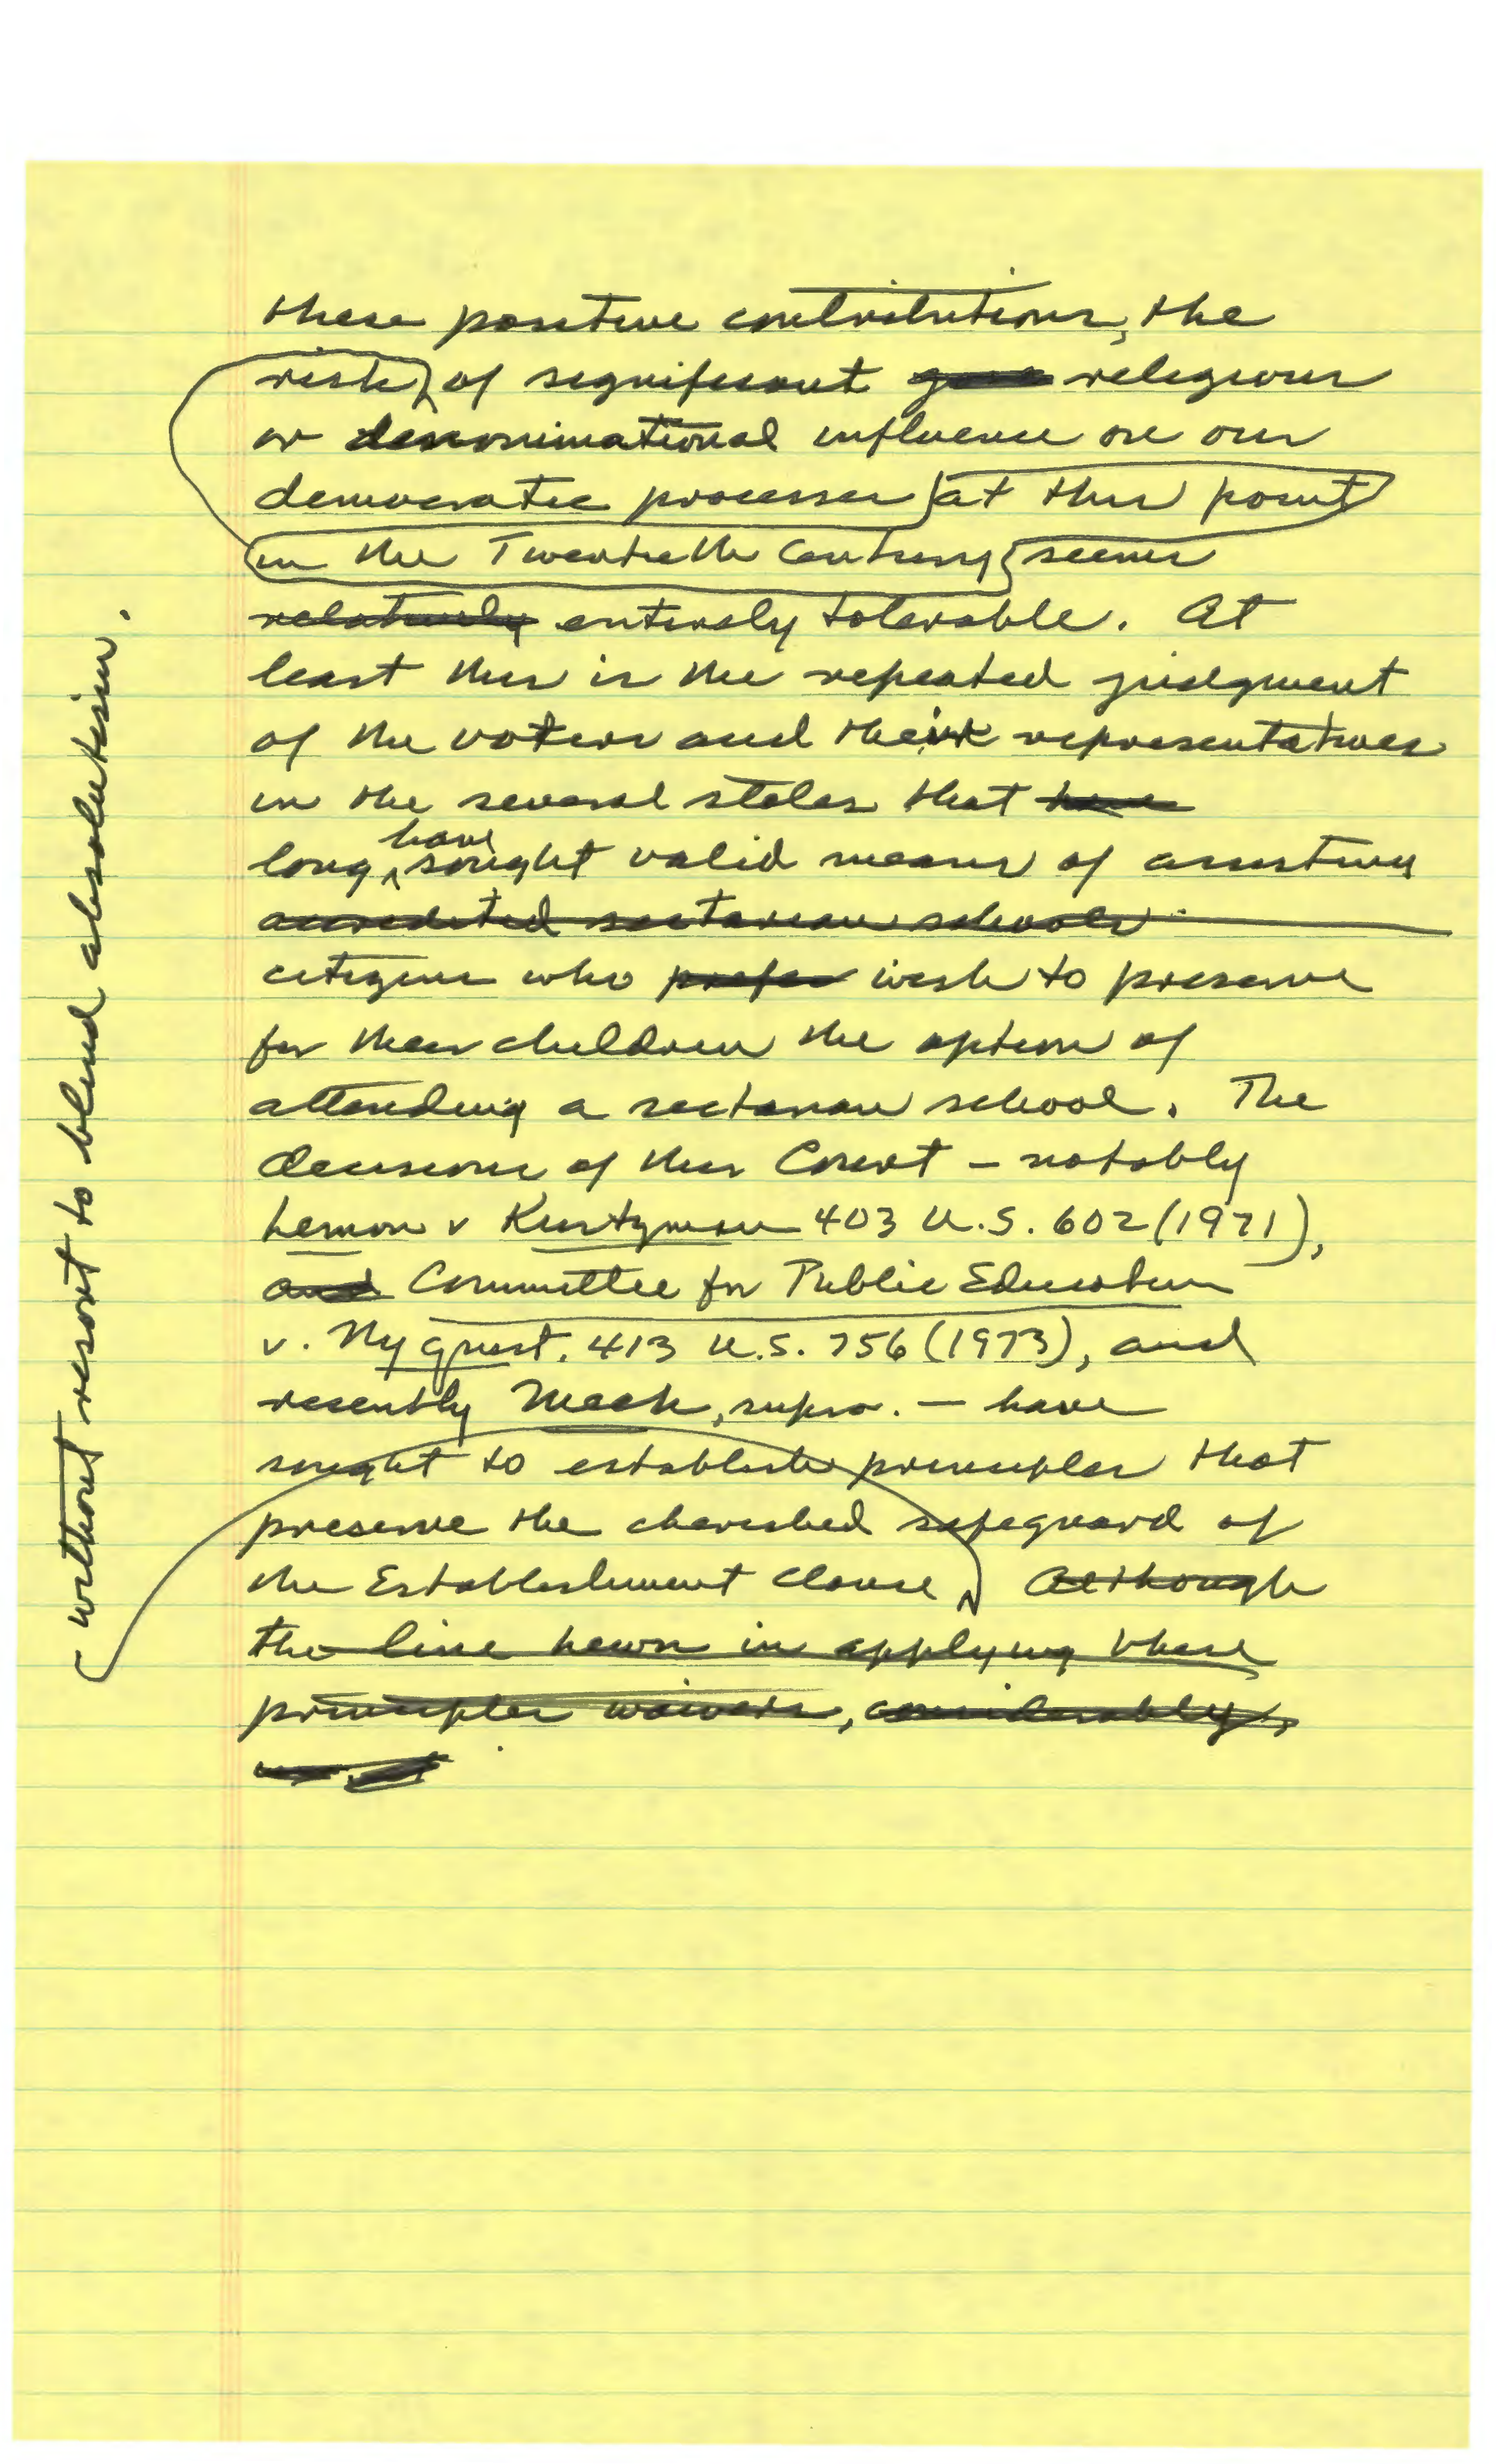 these positive contributions, the
risk of significant religious
or denominational influence on our
democratic processes at this point
in the Twentieth Century seems
relatively entirely tolerable. At
least this is the repeated judgment
of the voters and their representatives
in the several states that have
long have sought valid means of assisting
accredited sectarian schools
citizens who prefer wish to preserve
for their children the option of
attending a sectarian school. The
decisions of this Court - notably
Lemon v Kurtzman 403 U.S. 602 (1971),
and Committee for Public Education
v. Nyquist, 413 U.S. 756 (1973), and
recently Meek, supra. - have
sought to establish principles that
preserve the cherished safeguard of
the Establishment Clause Although
the line hewn in applying these
principles waivers, considerably,
without resort to blind absolutism.